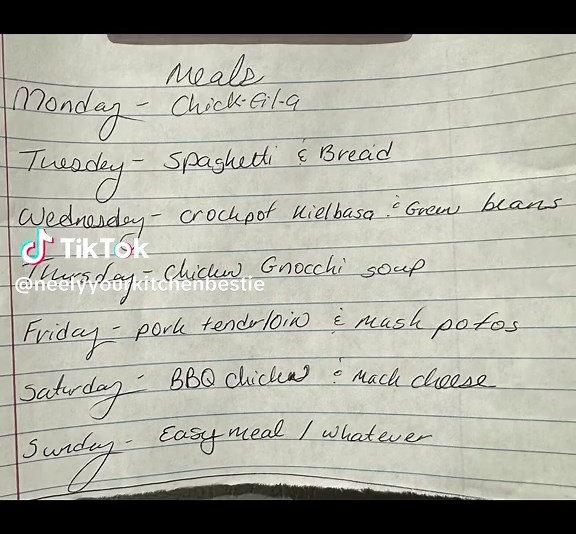 Meals
Monday - Chick-fil-a
Tuesday - Spaghetti & Bread
Wednesday - crockpot Kielbasa & Green beans
TikTok
Thursday - Chicken Gnocchi soup
@neelyyourkitchenbestie
Friday - pork tenderloin & mash potos
Saturday - BBQ chicken & mack cheese
Sunday - Easy meal / whatever